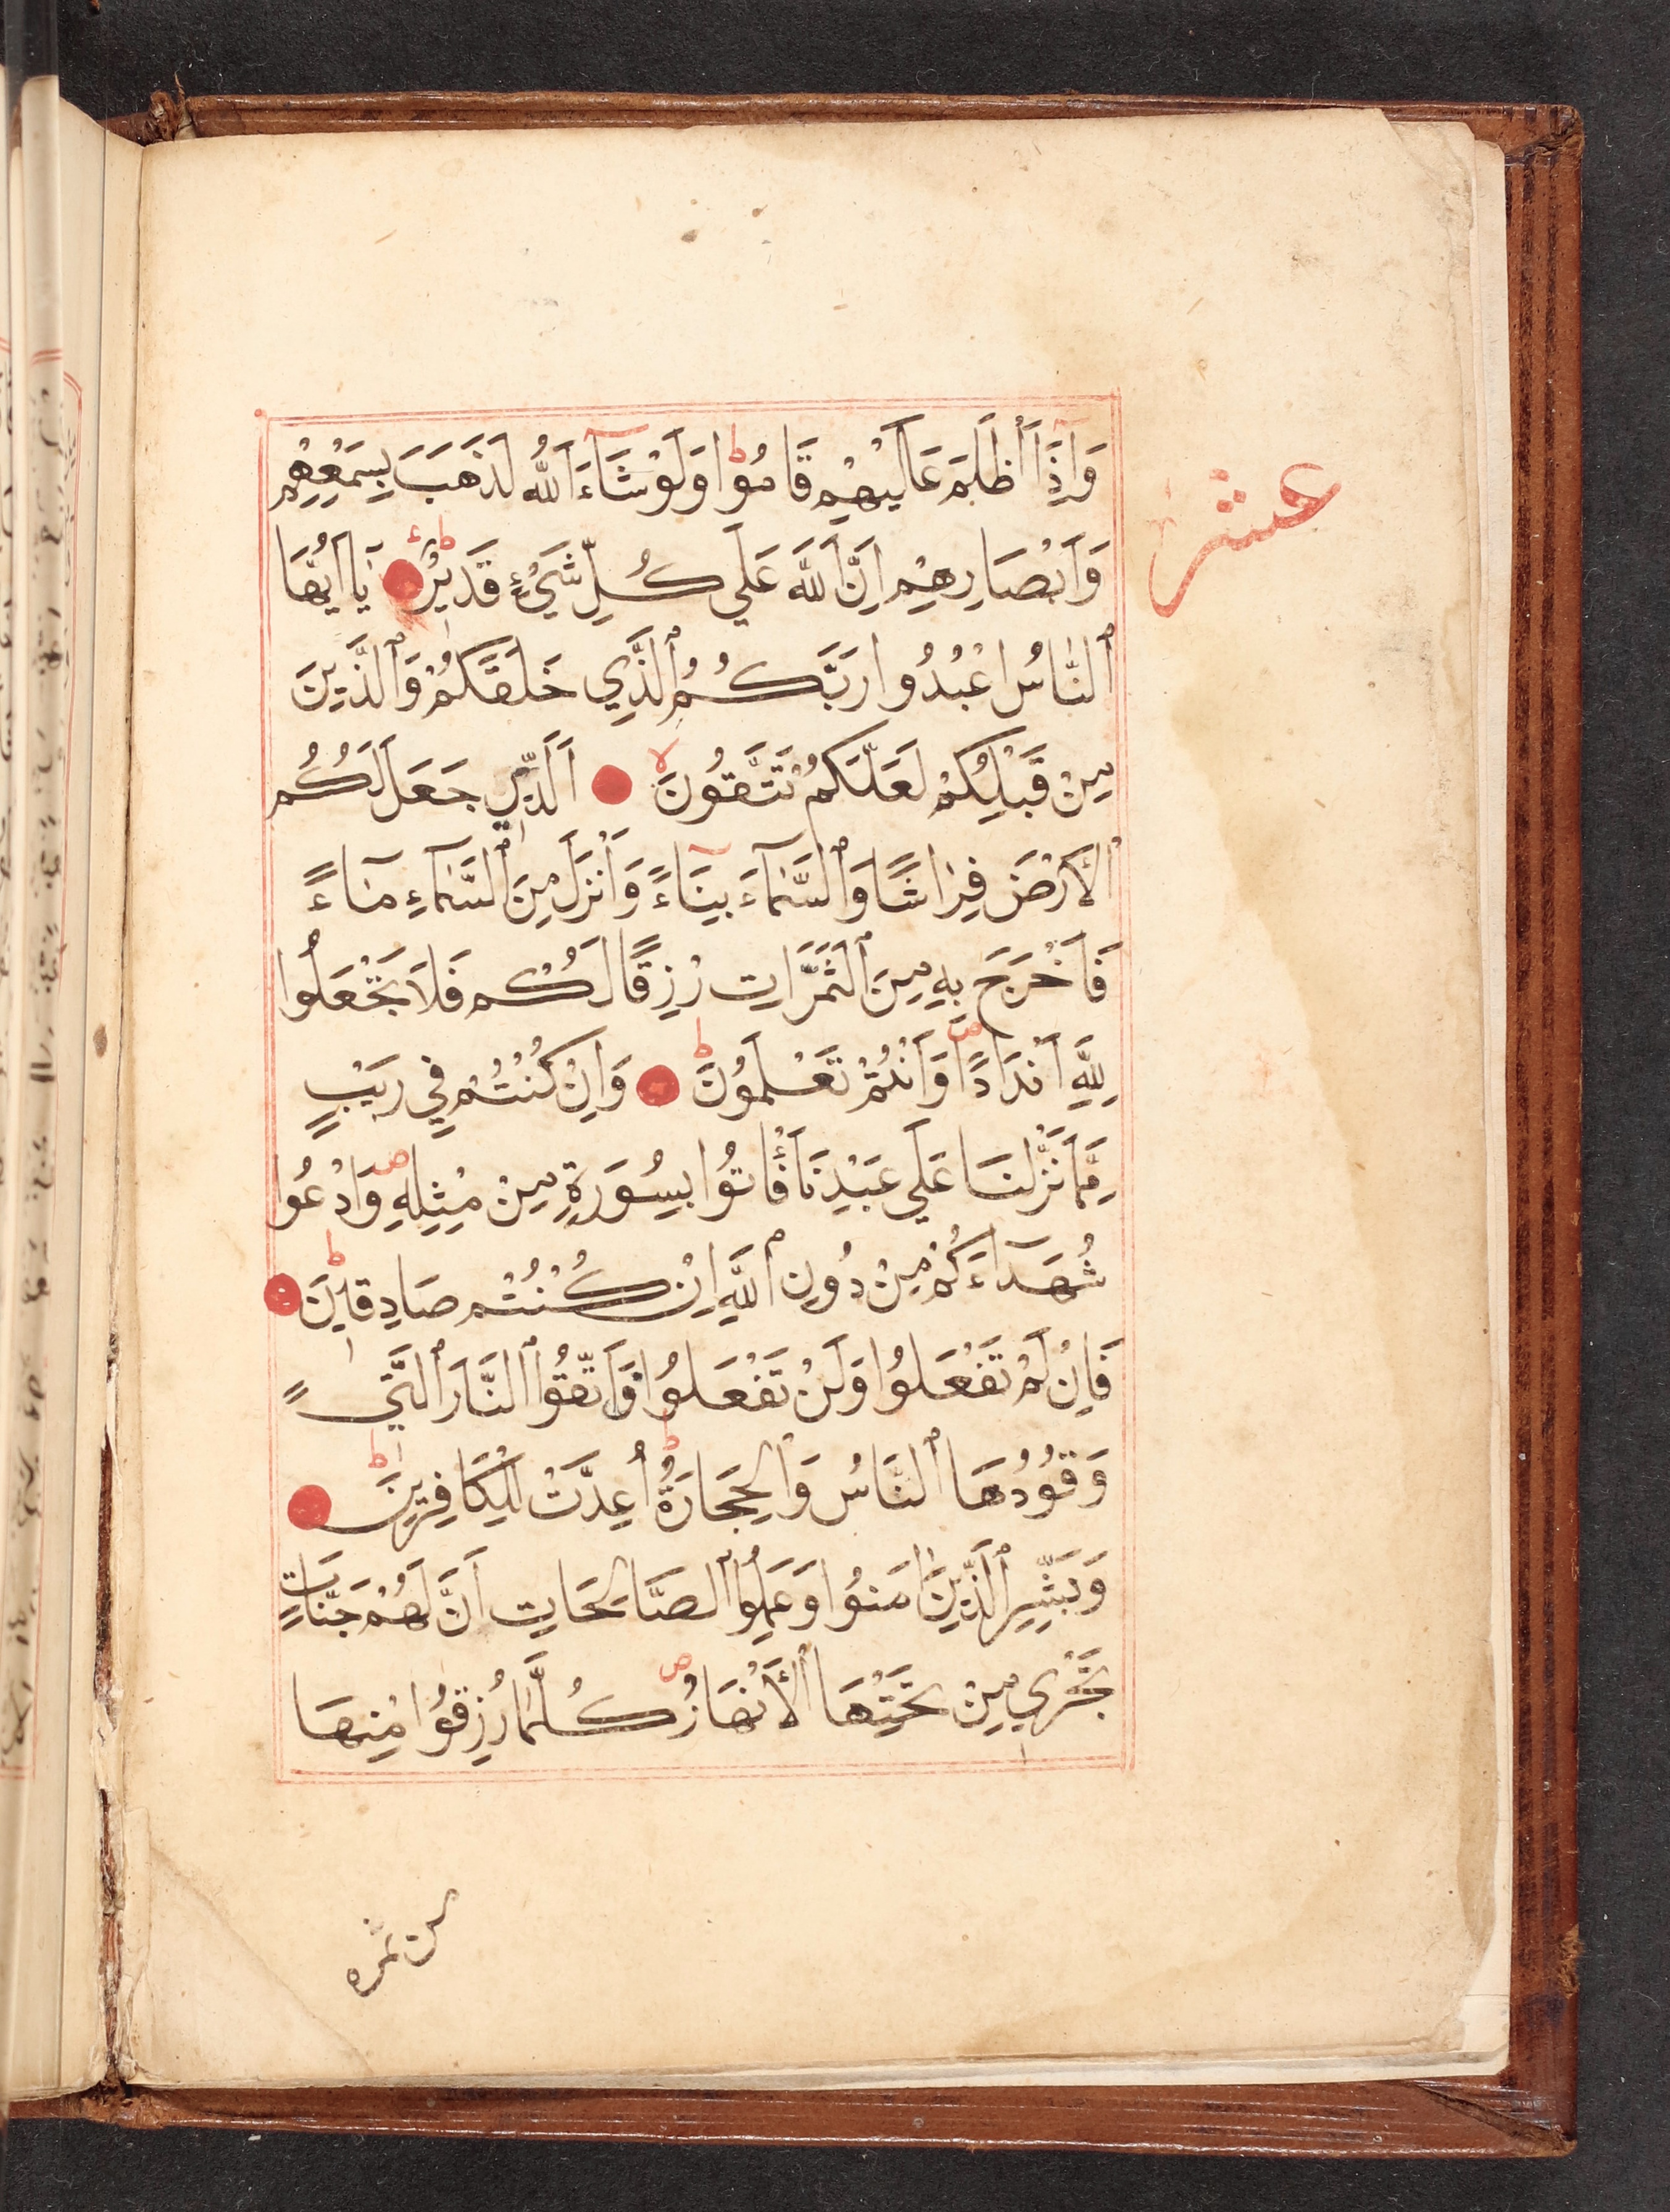 وَاِذَٓا اَظْلَمَ عَلَيْهِمْ قَامُوا ط وَلَوْ شَٓاءَ اللّٰهُ لَذَهَبَ بِسَمْعِهِمْ
عشر
وَاَبْصَارِهِمْ اِنَّ اللّٰهَ عَلٰي كُلِّ شَيْءٍ قَدِيرٌ ط ء يَٓا اَيُّهَا
ٱلنَّاسُ اعْبُدُوا رَبَّكُمُ ٱلَّذِي خَلَقَكُمْ وَٱلَّذِينَ
مِنْ قَبْلِكُمْ لَعَلَّكُمْ تَتَّقُونَ لا اَلَّذِي جَعَلَ لَكُمُ
ٱلْأَرْضَ فِرَاشًا وَٱلسَّمَٓاءَ بِنَٓاءً وَاَنْزَلَ مِنَ ٱلسَّمَٓاءِ مَٓاءً
فَاَخْرَجَ بِهِ مِنَ ٱلثَّمَرَاتِ رِزْقًا لَكُمْ فَلَا تَجْعَلُوا
لِلّٰهِ اَنْدَادًا ص وَاَنْتُمْ تَعْلَمُونَ ط وَاِنْ كُنْتُمْ فِي رَيْبٍ
مِمَّا نَزَّلْنَا عَلٰي عَبْدِنَا فَأْتُوا بِسُورَةٍ مِنْ مِثْلِهِ ص وَادْعُوا
شُهَدَٓاءَكُمْ مِنْ دُونِ ٱللّٰهِ اِنْ كُنْتُمْ صَادِقِينَ ط
فَاِنْ لَمْ تَفْعَلُوا وَلَنْ تَفْعَلُوا فَاتَّقُوا ٱلنَّارَ ٱلَّتِي
وَقُودُهَا ٱلنَّاسُ وَٱلْحِجَارَةُ ط اُعِدَّتْ لِلْكَافِرِينَ ط
وَبَشِّرِ ٱلَّذِينَ اٰمَنُوا وَعَمِلُوا ٱلصَّالِحَاتِ اَنَّ لَهُمْ جَنَّاتٍ
تَجْرِي مِنْ تَحْتِهَا ٱلْأَنْهَارُ ص كُلَّمَا رُزِقُوا مِنْهَا
من ثمره